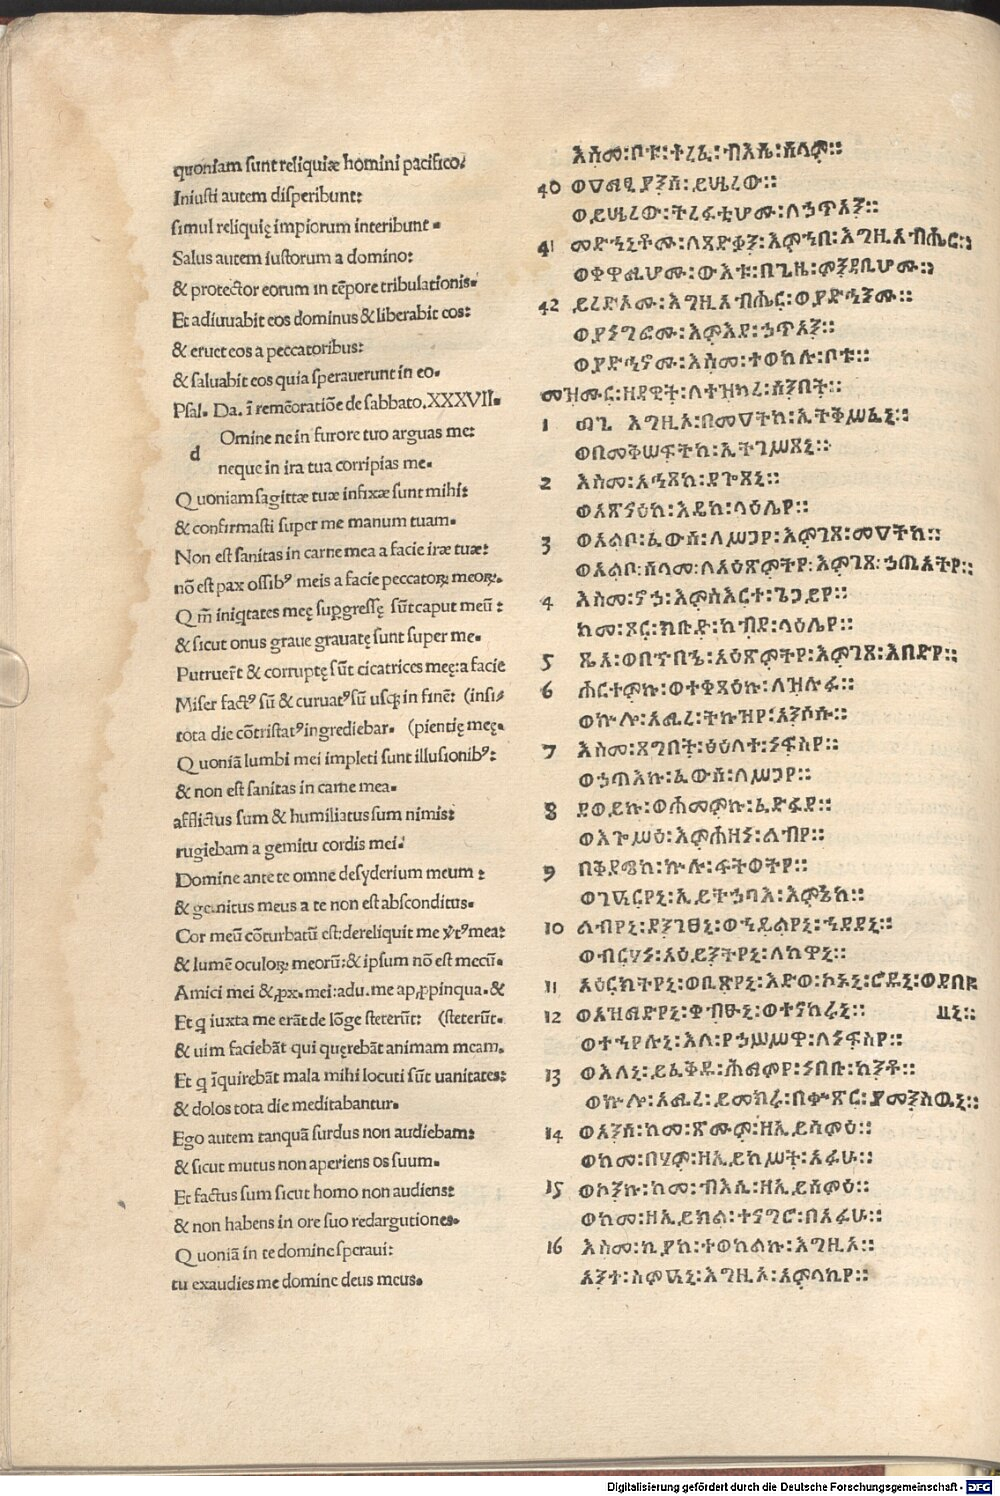 quoniam sunt reliquiæ homini pacifico:
Iniusti autem disperibunt:
simul reliquię impiorum interibunt.
Salus autem iustorum a domino:
& protector eorum in tēpore tribulationis.
Et adiuuabit eos dominus & liberabit eos:
& eruet eos a peccatoribus:
& saluabit eos quia sperauerunt in eo.
Psal. Da. ī remēoratiōe de sabbato. XXXVII.
d Omine ne in furore tuo arguas me:
neque in ira tua corripias me.
Quoniam sagittæ tuæ infixæ sunt mihi:
& confirmasti super me manum tuam.
Non est sanitas in carne mea a facie iræ tuæ:
nō est pax ossibꝰ meis a facie peccatoꝝ meoꝝ.
Qm̄ iniq̄tates meę suꝑgressę sūt caput meū:
& sicut onus graue grauatę sunt super me.
Putruer̄t & corruptę sūt cicatrices meę: a facie
Miser factꝰ sū & curuatꝰ sū usq̄ in finē: (insi-
tota die cōtristatꝰ ingrediebar. (pientię meę.
Quoniā lumbi mei impleti sunt illusionibꝰ:
& non est sanitas in carne mea.
afflictus sum & humiliatus sum nimis:
rugiebam a gemitu cordis mei:
Domine ante te omne desyderium meum:
& gemitus meus a te non est absconditus.
Cor meū cōturbatū est: dereliquit me v̄tꝰ mea:
& lumē oculoꝝ meorū: & ipsum nō est mecū.
Amici mei & ꝓx. mei: adu. me ap̄ꝓpinqua. &
Et q̄ iuxta me erāt de lōge steterūt: (steterūt.
& uim faciebāt qui quęrebāt animam meam.
Et q̄ īquirebāt mala mihi locuti sūt uanitates:
& dolos tota die meditabantur.
Ego autem tanquā surdus non audiebam:
& sicut mutus non aperiens os suum.
Et factus sum sicut homo non audiens:
& non habens in ore suo redargutiones.
Quoniā in te domine speraui:
tu exaudies me domine deus meus.
እስመ፡ቦቱ፡ተረፈ፡ብእሴ፡ሰላም።
40 ይሤረው።
ወይሤረው፡ትረፊቲሆሙ፡ለኃጥአን።
41 መድኀኒቶሙ፡ለጻድቃን፡እምኀበ፡እግዚአብሔር።
ወቀዋሚሆሙ፡ውእቱ፡በጊዜ፡ምንዳቤሆሙ።
42 ይረድኦሙ፡እግዚአብሔር፡ወያድኅኖሙ።
ወያነግፎሙ፡እምእደ፡ኃጥአን።
ወያድኅኖሙ፡እስመ፡ተወከሉ፡ቦቱ።
መዝሙር፡ዘዳዊት፡ለተዝካረ፡ሰንበት።
1 ወጊ እግዚኦ፡በመዐትከ፡ኢትቅሥፈኒ።
ወበመቅሠፍትከ፡ኢትገሥጸኒ።
2 እስመ፡አሕጻከ፡ደጐጻኒ።
ወአጽናዕከ፡እዴከ፡ላዕሌየ።
3 ወአልቦ፡ፈውሰ፡ለሥጋየ፡እምገጸ፡መዐትከ።
ወአልቦ፡ሰላመ፡ለአዕጽምትየ፡እምገጸ፡ኃጢአትየ።
4 እስመ፡ኖኃ፡እምስእርተ፡ጌጋይየ።
ከመ፡ጾር፡ክቡድ፡ከብደ፡ላዕሌየ።
5 ጼአ፡ወቦኵበኈ፡አዕጽምትየ፡እምገጸ፡እበድየ።
6 ሕርተምኩ፡ወተቀጻዕኩ፡ለዝሉፉ።
ወኵሉ፡አሚረ፡ትኩዝየ፡አንሶሱ።
7 እስመ፡ጸግበት፡ፅዕለተ፡ነፍስየ።
ወኃጣእኩ፡ፈውሰ፡ለሥጋየ።
8 ደወይኩ፡ወሐመምኩ፡ፈድፋደ።
ወእጐሥዕ፡እምሐዘነ፡ልብየ።
9 በቅድሜከ፡ኵሉ፡ፍትወትየ።
ወገዓርየኒ፡ኢይትኃባእ፡እምኔከ።
10 ልብየኒ፡ደንገፀኒ፡ወኀይልየኒ፡ኀደገኒ።
ወብርሃነ፡አዕይንትየኒ፡ለከዋኒ።
11 አዕርክትየኒ፡ወቢጽየኒ፡እድወ፡ኮኑኒ፡ሮዱኒ፡ወደበየ
12 ወአዝማድየኒ፡ቀብፁኒ፡ወተናከሩኒ። ዩኒ።
ወተኀየሉኒ፡እለ፡የኃሥሥዋ፡ለነፍስየ።
13 ወእለኒ፡ይፈቅዱ፡ሕማምየ፡ነበቡ፡ከንቶ።
ወኵሉ፡አሚረ፡ይመክሩ፡በቍጽር፡ያመንስዉኒ።
14 ወአንሰ፡ከመ፡ጽሙም፡ዘኢይሰምዕ።
ወከመ፡በሃም፡ዘኢይከሥት፡አፉሁ።
15 ወኮንኩ፡ከመ፡ብእሲ፡ዘኢይሰምዕ።
ወከመ፡ዘኢይክል፡ተናግሮ፡በአፉሁ።
16 እስመ፡ኪያከ፡ተወከልኩ፡እግዚኦ።
አንተ፡ስምዓኒ፡እግዚኦ፡አምላኪየ።
Digitalisierung gefördert durch die Deutsche Forschungsgemeinschaft - DFG